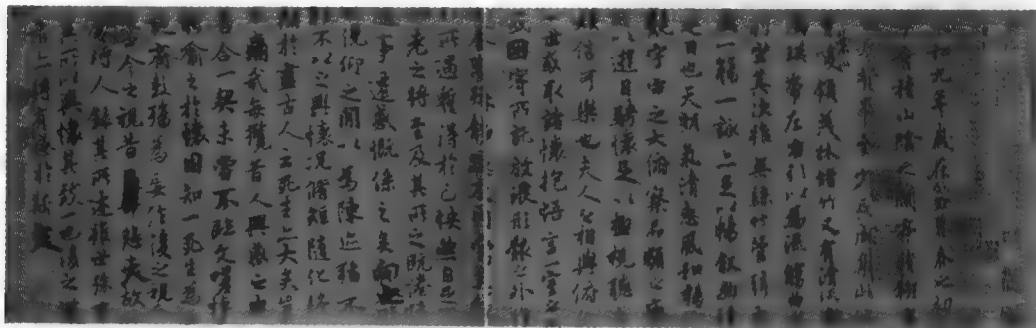 和九年歲在癸丑暮春之初
會稽山陰之蘭亭脩稧
羣賢畢至少長咸集此
峻領茂林脩竹又有清流
映帶左右引以為流觴曲
坐其次雖無絲竹管絃
一觴一詠亦足以暢敘幽
是日也天朗氣清惠風和暢
觀宇宙之大俯察品類之盛
以遊目騁懷足以極視聽
信可樂也夫人之相與俯
世或取諸懷抱悟言一室之
或因寄所託放浪形骸之外
萬殊靜躁不同
所遇蹔得於己怏然自足
老之將至及其所之既惓
事遷感慨係之矣向之
俛仰之閒以為陳迹猶不
不以之興懷況脩短隨化終
於盡古人云死生亦大矣豈
痛哉每攬昔人興感之由
合一契未嘗不臨文嗟悼
喻之於懷固知一死生為
齊彭殤為妄作後之視
今之視昔悲夫故
時人錄其所述雖世殊
所以興懷其致一也後之
有感於斯